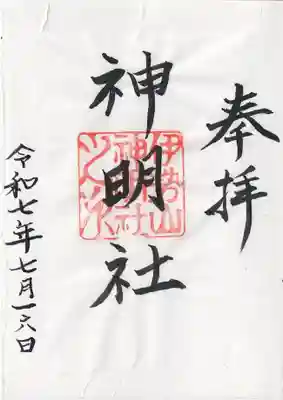 奉拝
神明社
伊勢山
神明社
令和七年七月一六日